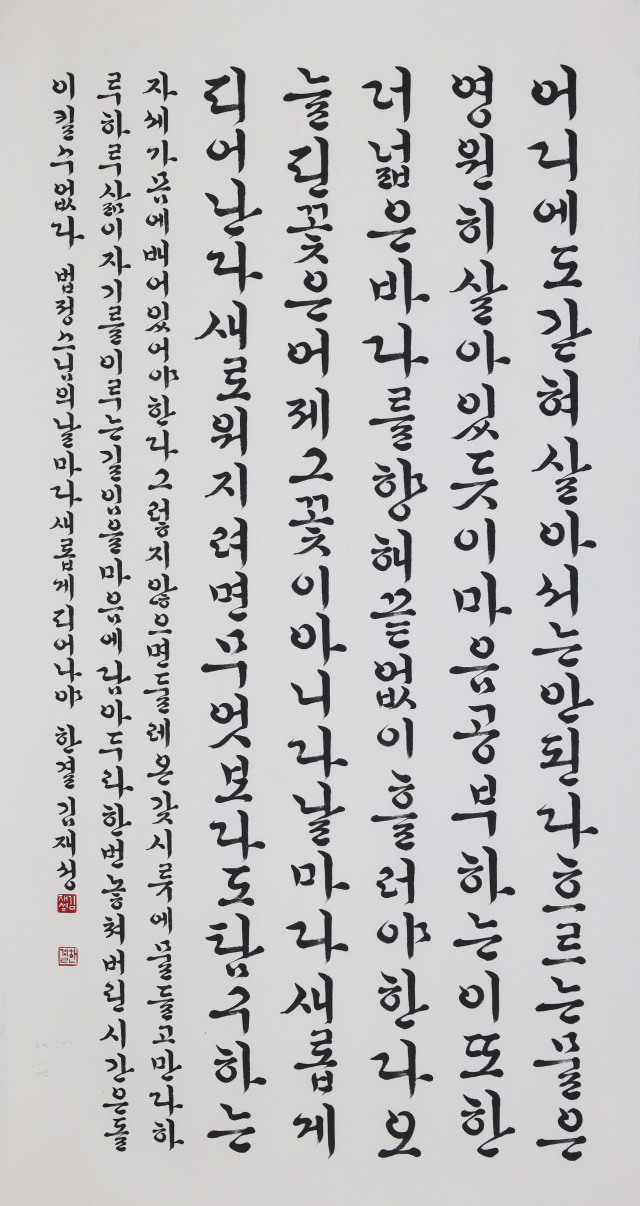 어디에도갇혀살아서는안된다흐르는물은
영원히살아있듯이마음공부하는이또한
더넓은바다를향해끝없이흘러야한다오
늘핀꽃은어제그꽃이아니라날마다새롭게
피어난다새로워지려면무엇보다도탐구하는
자세가몸에배어있어야한다그렇지않으면둘레온갖시류에물들고만다하
루하루삶이자기를이루는길임을마음에담아두라한번놓쳐버린시간은돌
이킬수없다 법정스님의날마다새롭게피어나야 한결김재성
김재성
한결